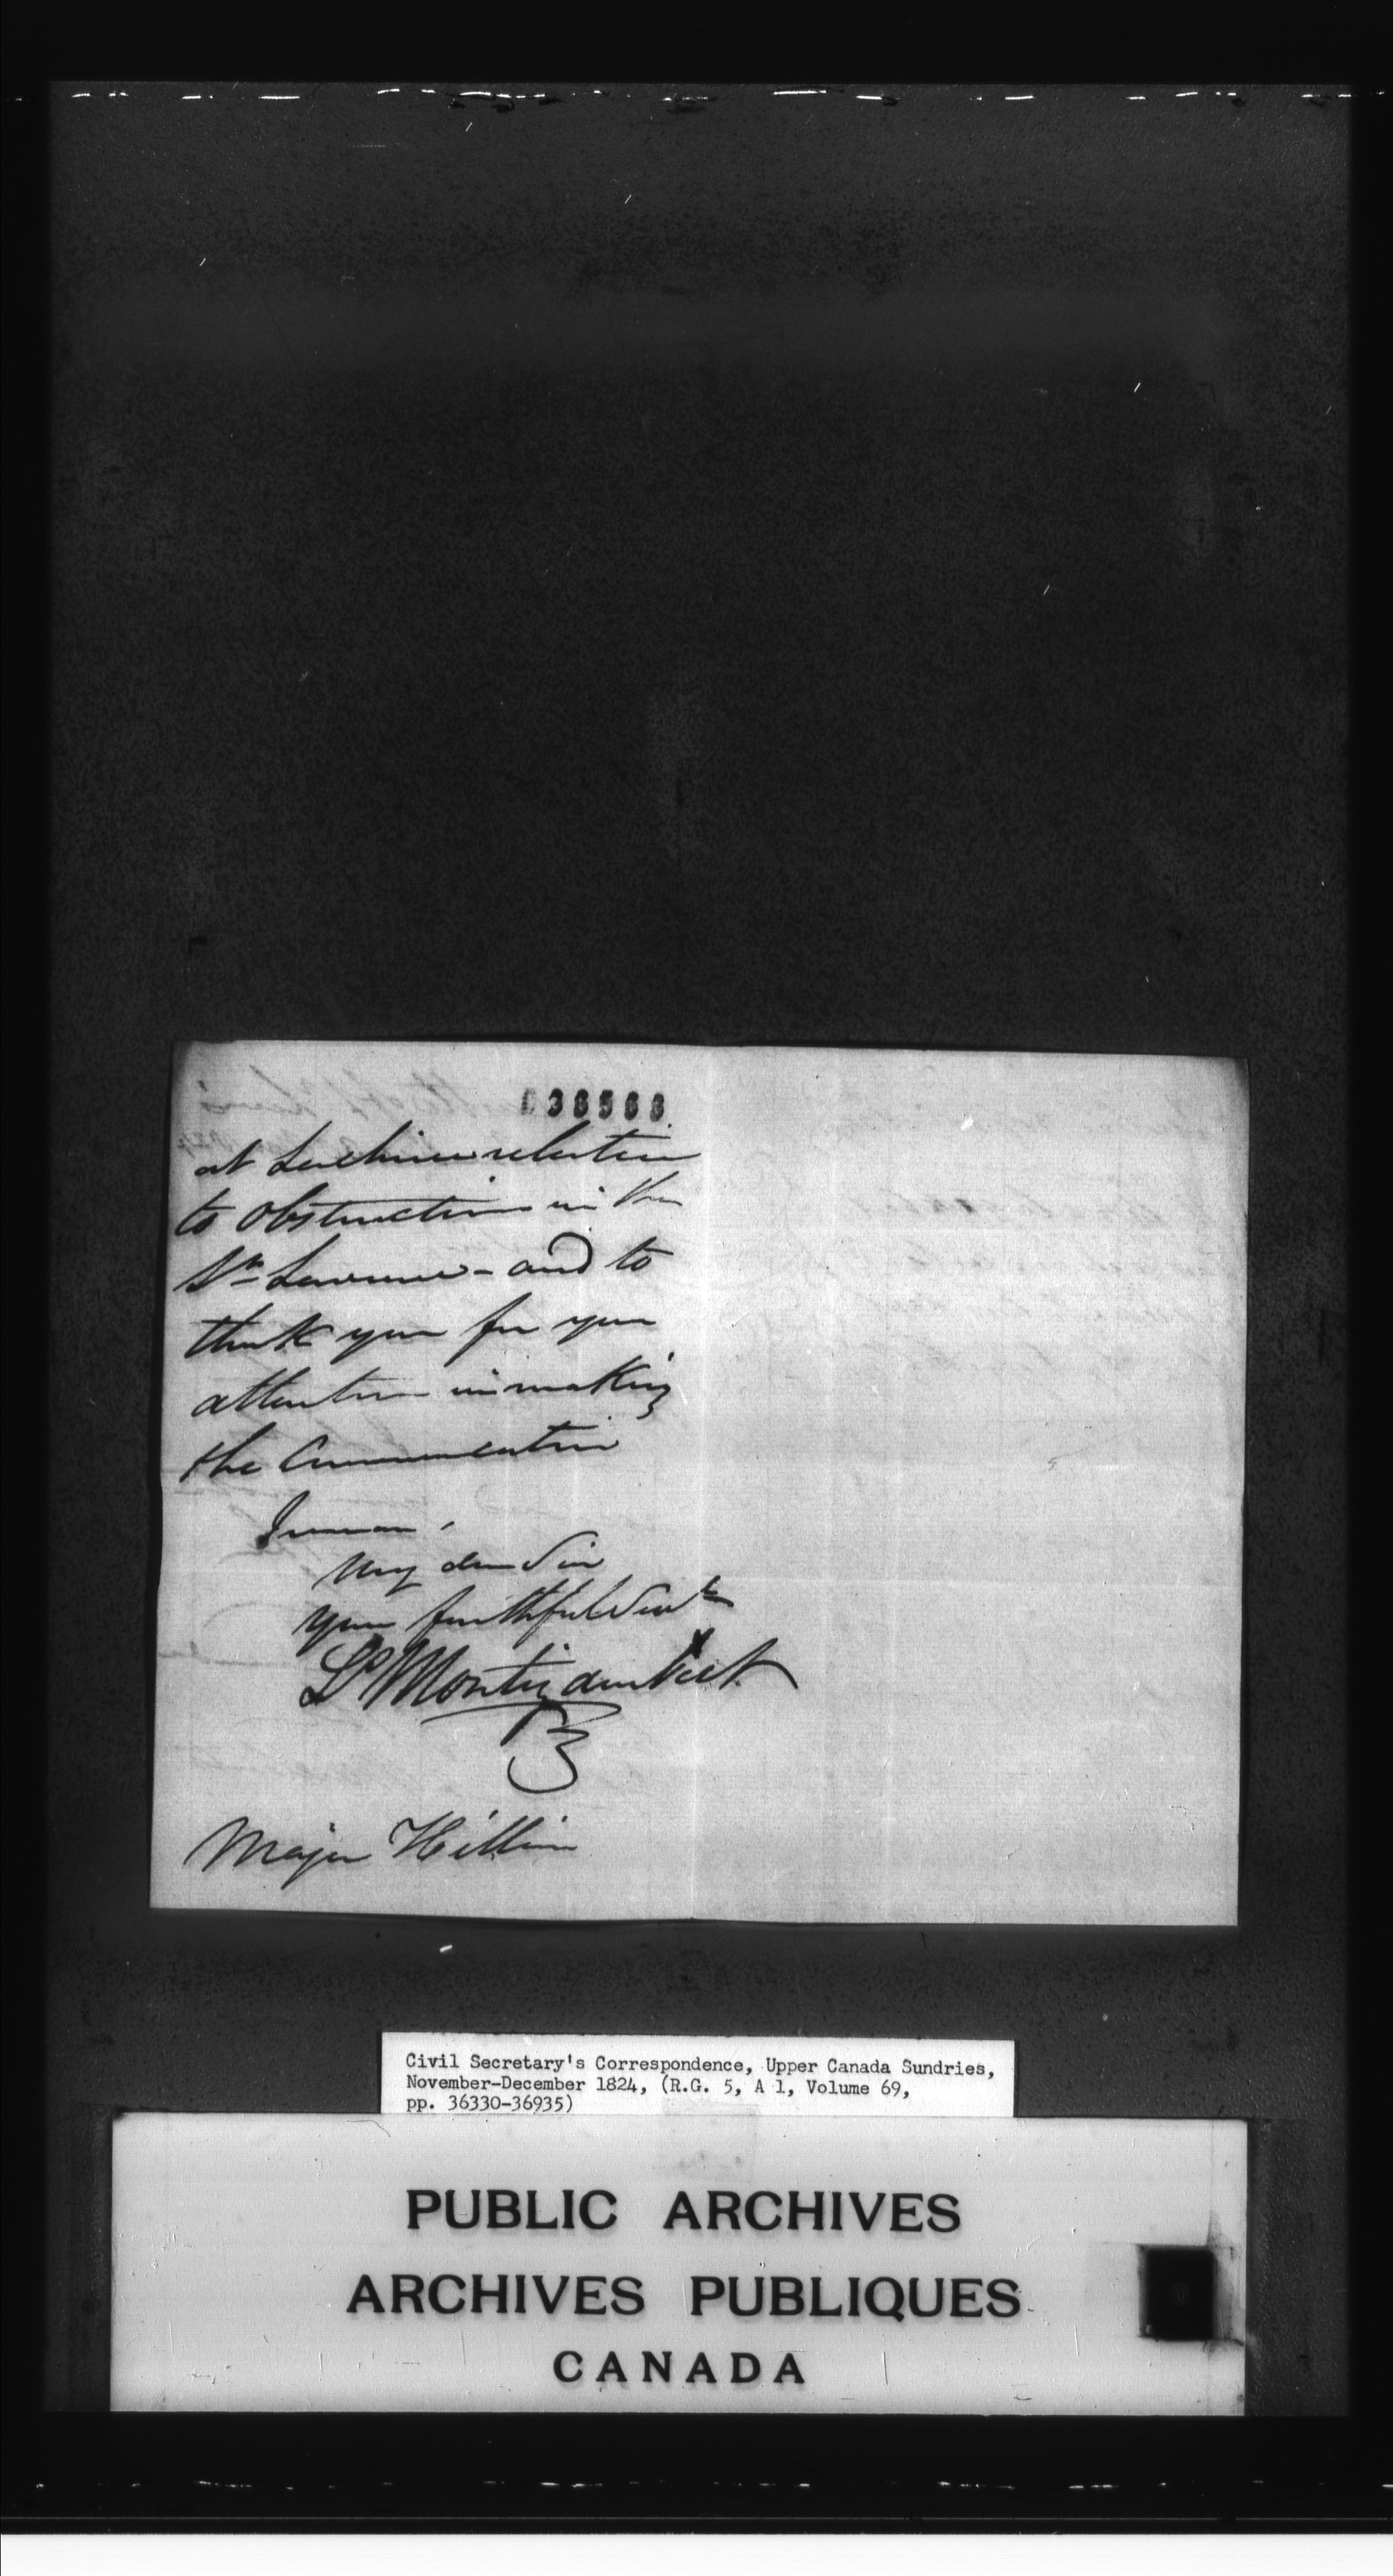 036563
at Lachine relative
to Obstructions in the
St. Lawrence - and to
thank you for your
attention in making
the Communication
I remain,
My dear Sir
your faithful Servt
Ls Montizambert
Major Hillier
Civil Secretary's Correspondence, Upper Canada Sundries,
November-December 1824, (R.G. 5, A 1, Volume 69,
pp. 36330-36935)
PUBLIC ARCHIVES
ARCHIVES PUBLIQUES
CANADA